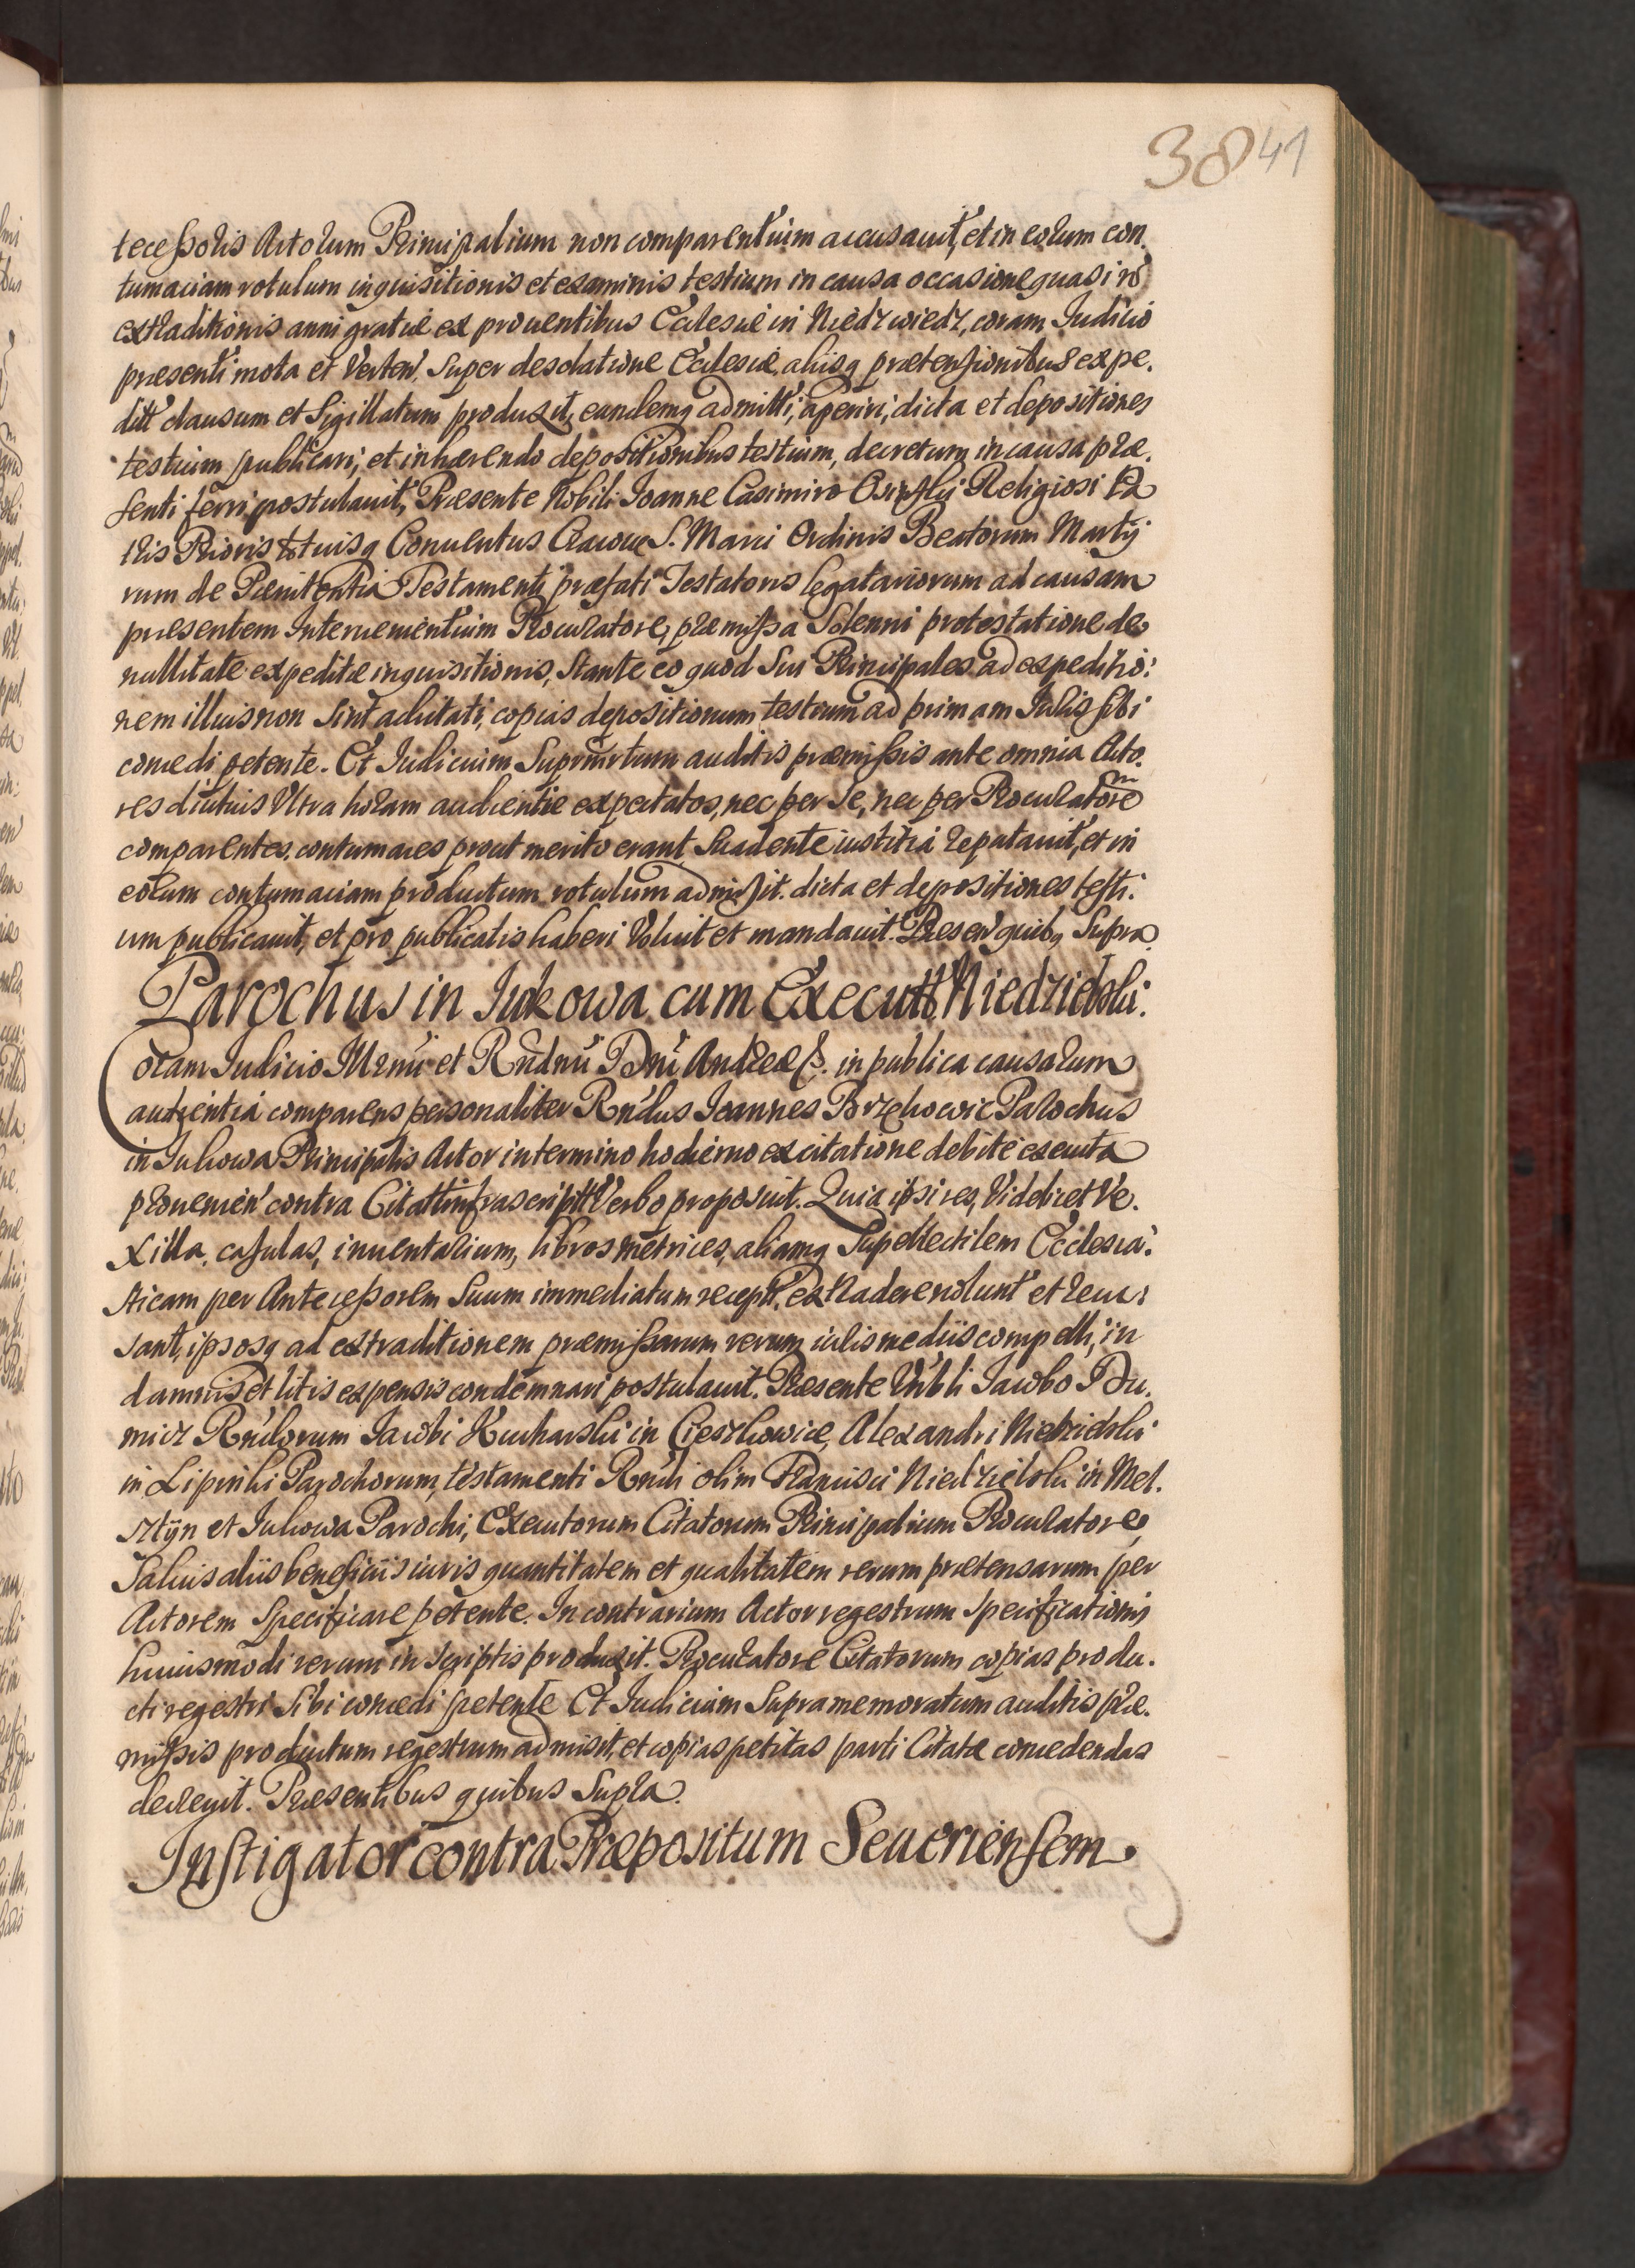 38 41
tecessoris Actorum Principalium non comparentium accusavit, et in eorum con
tumaciam rotulum inquisitionis et examinis testium in causa occasione quasi
extraditionis anni gratiæ ex proventibus Ecclesiæ in Niedzwiedz, coram Judicio
præsenti mota et Verten. Super desolatione Ecclesiæ, aliisq prætensionibus expe.
ditt clausum et Sigillatum produxit, eundemq admitti, aperiri, dicta et depositiones
testium publicari, et inhærendo depositionibus testium, decretum in causa præ.
senti ferri postulavit, Præsente Nobili Joanne Casimiro Religiosi Pa
tris Prioris totiusq Conventus Cracoviæ S. Marci Ordinis Beatorum Marty
rum de Pænitentia Testamenti præfati Testatoris legatariorum ad causam
præsentem Intervenientium Procuratore, præmissa Solenni protestatione de
nullitate expeditæ inquisitionis, Stante eo quod Sui Principales ad expeditio:
nem illius non Sint adcitati, copias depositionum testium ad primam Juris sibi
concedi petente. Et Judicium Supra auditis præmissis ante omnia Acto.
res diutius Ultra horam audientiæ expectatos, nec per Se, nec per Procuratore
comparentes, contumaces prout merito erant Suadente iustitia reputavit, et in
eorum contumaciam productum rotulum admisit. dicta et depositiones testi.
um publicavit, et pro publicatis haberi Voluit et mandavit. Præsen quib, Supra
Parochus in Jukowa cum Executt Niedzielski.
Coram Judicio Illrmi et Rndmi Dni Andreæ in publica causarum
audientia comparens personaliter Rndus Joannes Borzechowic Parochus
in Jukowa Principalis Actor in termino hodierno ex citatione debite executa
provenien contra Citatt infrascriptt Verbo proposuit. Quia ipsi res, Videlicet Ve.
xilla, casulas, inventarium, libros metrices, aliamq Supellectilem Ecclesia:
sticam per Antecessorem Suum immediatum recept, extradere nolunt et recu:
sant, ipsosq ad extraditionem præmissarum rerum iuris mediis compelli, in
damnis et litis expensis condemnari postulavit. Præsente Nobli Jacobo Du.
micz Rndorum Jacobi Kucharski in Cieszkowice, Alexandri Niedzielski
in Lipinki Parochorum, testamenti Rndi olim Francisci Niedzielski in Mel.
sztyn et Jukowa Parochi, Executorum Citatorum Principalium Procuratore,
Salvis aliis beneficiis iuris quantitatem et qualitatem rerum prætensarum per
Actorem Specificare petente. In contrarium Actor regestrum Specificationis
huiusmodi rerum in Scriptis produxit. Procuratore Citatorum copias produ.
cti regestri Sibi concedi petente Et Judicium Supramemoratum auditis præ.
missis productum regestrum admisit, et copias petitas parti Citatæ concedendas
decrevit. Præsentibus quibus Supra.
Instigator contra Præpositum Severiensem.